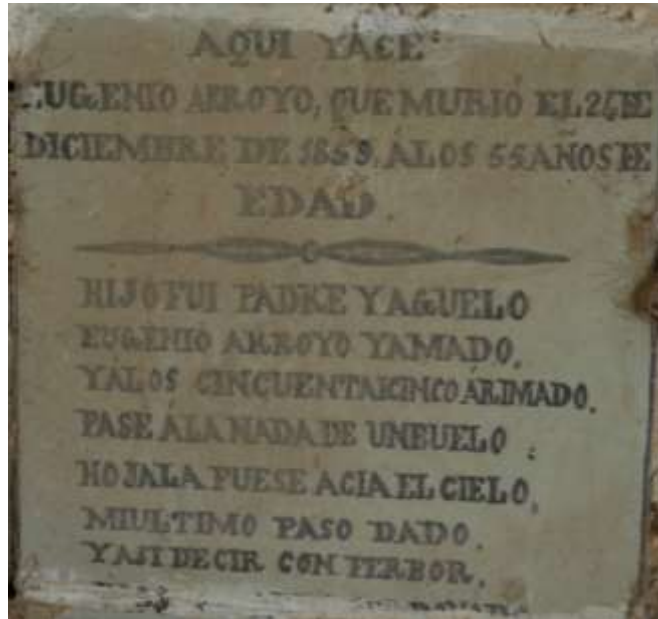 AQUI YACE
EUGENIO ARROYO, QUE MURIÓ EL 24 DE
DICIEMBRE DE 1859, Á LOS 55 AÑOS DE
EDAD.
HIJO FUI PADRE Y AGUELO
EUGENIO ARROYO YAMADO,
Y Á LOS CINCUENTAICINCO ÁRIMADO,
PASE Á LA NADA DE UN BUELO
HOJALA FUESE ACIA EL CIELO,
MI ULTIMO PASO DADO.
Y ASI DECIR CON FERBOR,